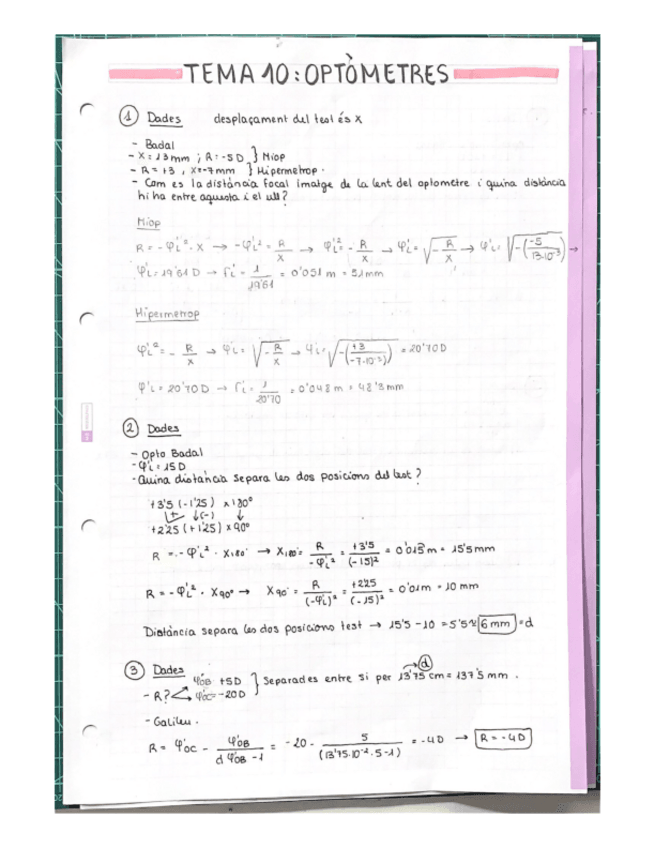 TEMA 10: OPTÒMETRES
① Dades desplaçament del test és x
- Badal
- X = 13 mm ; R = -5 D } Miop
- R = +3 , X = -7 mm } Hipermetrop.
- Com es la distància focal imatge de la lent del optometre i quina distància
hi ha entre aquesta i el ull?
Miop
R = - φ'L² · X → -φ'L² = R/X → φ'L² = - R/X → φ'L = √(- R/X) → φ'L = √(-(-5/13·10⁻³)) →
φ'L = 19'61 D → f'L = 1/19'61 = 0'051 m = 51 mm
Hipermetrop
φ'L² = - R/X → φ'L = √(- R/X) → φ'L = √(-(+3/-7·10⁻³)) = 20'70 D
φ'L = 20'70 D → f'L = 1/20'70 = 0'048 m = 48'8 mm
② Dades
- Opto Badal
- φ'L = 15 D
- Quina distància separa les dos posicions del test?
+3'5 (-1'25) x 180°
+ (-)
+2'25 (+1'25) x 90°
R = - φ'L² · X180° → X180° = R/-φ'L² = +3'5/(-15)² = 0'015 m = 15'5 mm
R = - φ'L² · X90° → X90° = R/(-φ'L)² = +2'25/(-15)² = 0'01 m = 10 mm
Distància separa les dos posicions test → 15'5 - 10 = 5'5 ≈ 6 mm = d
③ Dades d
φ'OB +5D } Separades entre si per 13'75 cm = 137'5 mm.
- R? φ'OC = -20D
- Galileu.
R = φ'OC - φ'OB/(d φ'OB - 1) = -20 - 5/(13'75·10⁻² · 5 - 1) = -4D → R = -4D